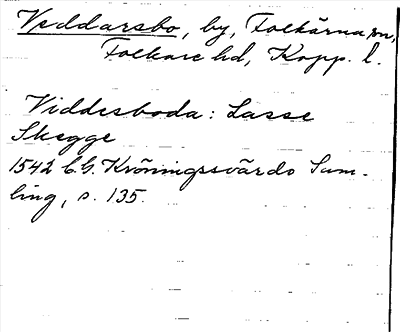 Veddarsbo, by, Folkärna sn,
Folkare hd, Kopp. l.
Viddesboda: Lasse
Skegge
1542 C.G. Kröningssvärds Sam-
ling, s. 135.